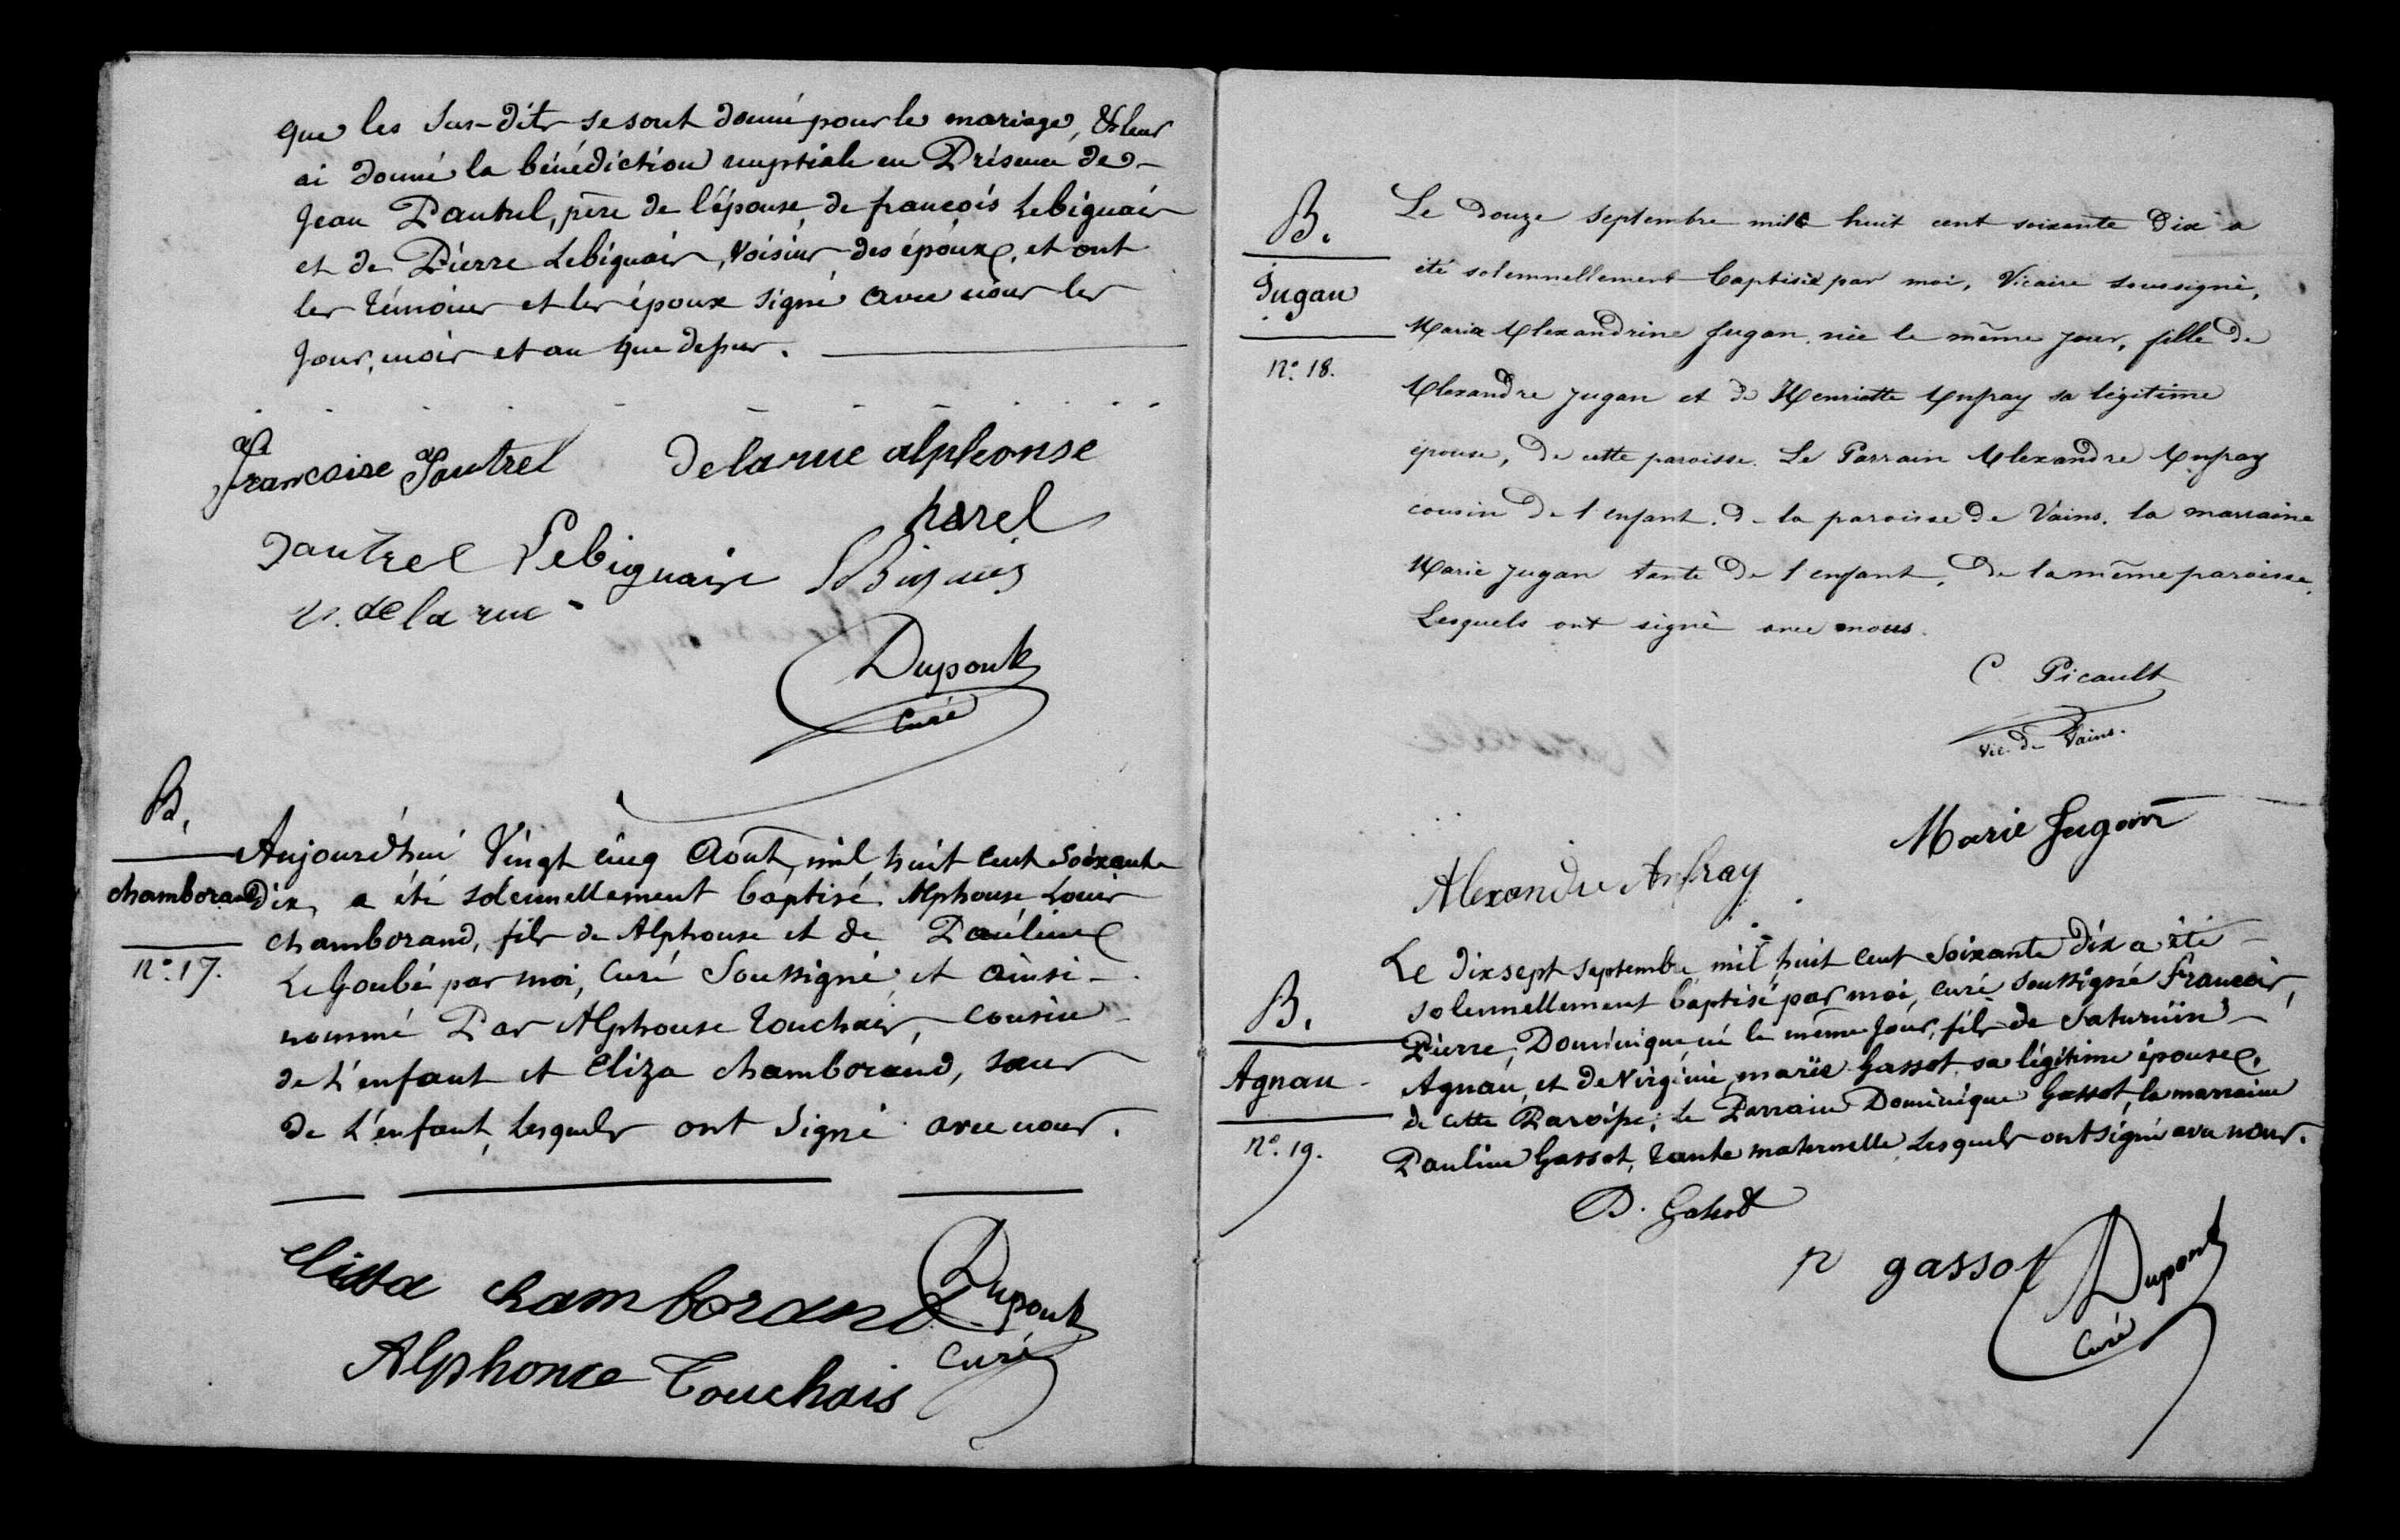 que les sus-dits se sont donné pour le mariage, & leur
ai donné la bénédiction nuptiale en Présence de
Jean Pautrel, père de l'épouse, de françois Lebiguais
et de Pierre Lebiguais, voisins des époux, et ont
les témoins et les époux signé avec nous les
Jour, mois et an que dessus.
francoise Pautrel delarue alphonse
harel
Pautrel Lebiguais
v. de la rue
Dupont
Curé
B.
chamborand
n°. 17.
Aujourd'hui Vingt cinq Août, mil huit cent soixante
dix, a été solennellement baptisé Alphonse Louis
chamborand, fils de Alphonse et de Pauline
LeGoubé par moi, Curé Soussigné et ainsi
nommé Par Alphonse Touchais, cousin
de L'enfant et Eliza chamborand, sœur
de L'enfant, Lesquels ont signé avec nous.
Elisa chamborand Dupont
Curé
Alphonce Touchais
B.
Jugan
n°. 18.
Le douze septembre mille huit cent soixante dix a
été solemnellement baptisée par moi, Vicaire soussigné,
Maria Alexandrine Jugan, née le même jour, fille de
Alexandre Jugan et de Henriette Anfray sa légitime
épouse, de cette paroisse. Le Parrain Alexandre Anfray
cousin de l'enfant, de la paroisse de Vains. la marraine
Marie Jugan tante de l'enfant, de la même paroisse.
Lesquels ont signé avec nous.
C Picault
Vic. de Vains.
Marie Jugan
Alexandre Anfray
B.
Agnan
n°. 19.
Le dix sept septembre mil huit cent soixante dix a été
solennellement baptisé par moi, curé soussigné François,
Pierre, Dominique né le même jour, fils de Saturnin
Agnan, et de Virginie marie Gassot sa légitime épouse,
de cette Paroisse; le Parrain Dominique Gassot, la marraine
Pauline Gassot, tante maternelle, Lesquels ont signé avec nous.
D. Gassot
p gassot
Dupont
Curé